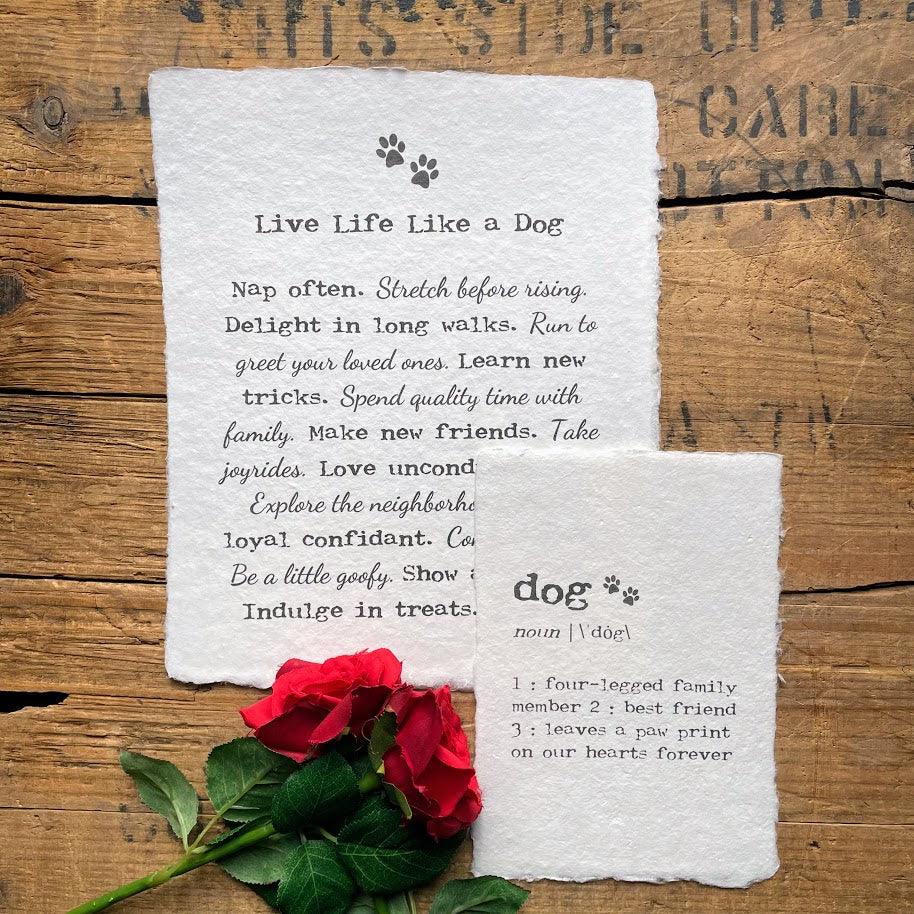 THIS SIDE UP
CARE
COTTON
Live Life Like a Dog
Nap often. Stretch before rising.
Delight in long walks. Run to
greet your loved ones. Learn new
tricks. Spend quality time with
family. Make new friends. Take
joyrides. Love uncond
Explore the neighborho
loyal confidant. Co
Be a little goofy. Show
Indulge in treats.
dog
noun | \ˈdȯg\
1 : four-legged family
member 2 : best friend
3 : leaves a paw print
on our hearts forever